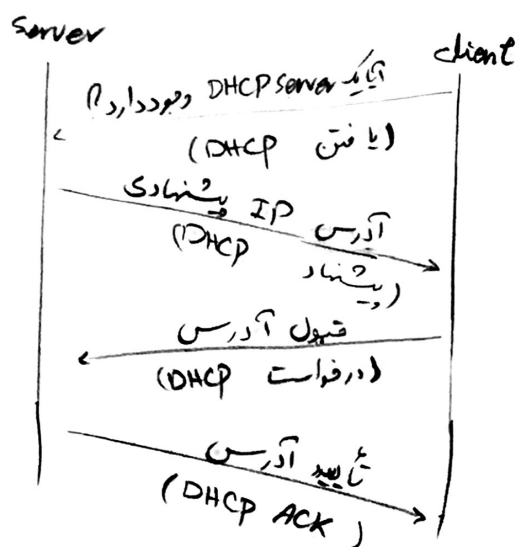 Server
client
آیا یک DHCP server وجود دارد؟
(یافتن DHCP)
آدرس IP پیشنهادی
(پیشنهاد DHCP)
قبول آدرس
(درخواست DHCP)
تأیید آدرس
(DHCP ACK)